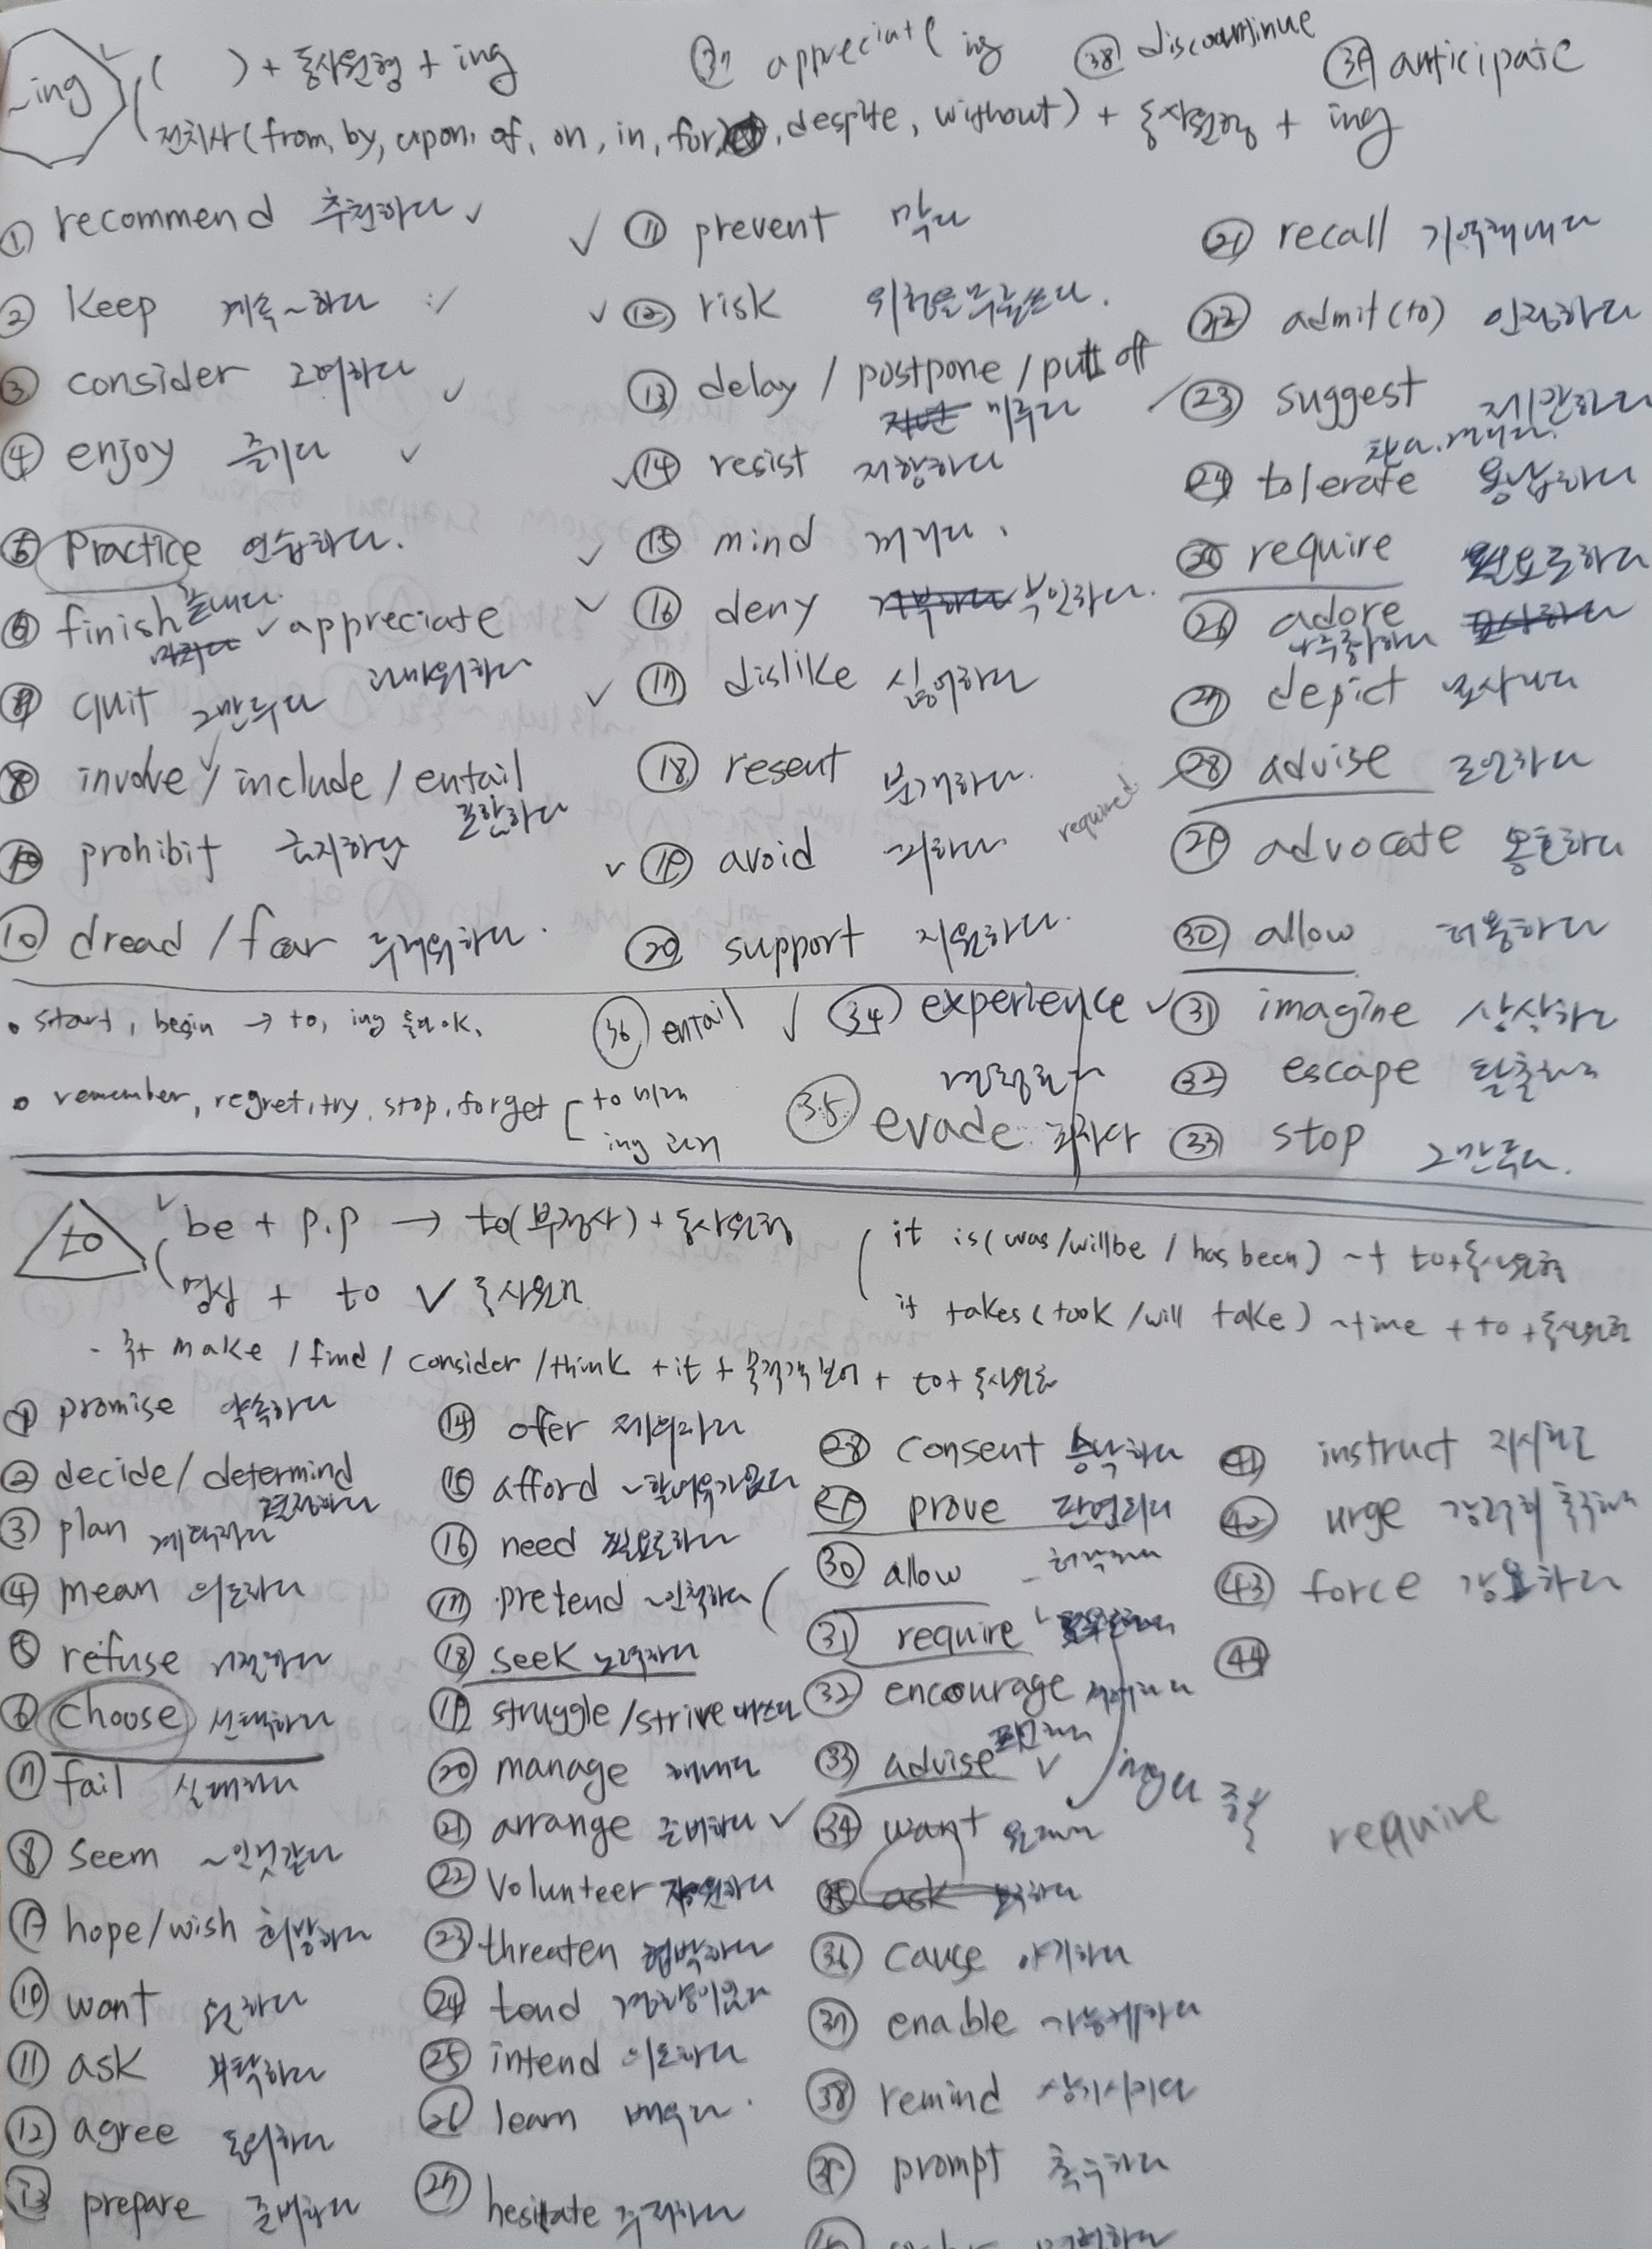 ~ing
( ) + 동사원형 + ing
37 appreciate ing
38 discountinue
39 anticipate
전치사 (from, by, upon, of, on, in, for, despite, without) + 동사원형 + ing
① recommend 추천하다 ✓
② keep 계속~하다
③ consider 고려하다 ✓
④ enjoy 즐기다 ✓
⑤ Practice 연습하다.
⑥ finish 끝내다. ✓ appreciate 고마워하다
quit 그만두다
⑧ involve / include / entail 포함하다
prohibit 금지하다
⑩ dread / fear 두려워하다.
✓ ⑪ prevent 막다
✓ ⑫ risk 위험을 무릅쓰다.
⑬ delay / postpone / put off 미루다
✓ ⑭ resist 저항하다
✓ ⑮ mind 꺼리다.
✓ ⑯ deny 부인하다.
✓ ⑰ dislike 싫어하다
⑱ resent 분개하다.
✓ ⑲ avoid 피하다
⑳ support 지원하다.
㉑ recall 기억해내다
㉒ admit (to) 인정하다
㉓ suggest 제안하다
㉔ tolerate 용납하다
㉕ require 필요로하다
㉖ adore
㉗ depict 묘사하다
required
㉘ advise 조언하다
㉙ advocate 옹호하다
㉚ allow 허용하다
㉛ imagine 상상하다
㉜ escape 탈출하다
㉝ stop 그만두다.
㊱ entail ✓
㉞ experience ✓
㉟ evade
• start, begin → to, ing 둘다 ok.
• remember, regret, try, stop, forget [ to 미래
ing 과거
to
✓ be + p.p → to(부정사) + 동사원형
명사 + to ✓ 동사원형
it is (was / will be / has been) ~ + to + 동사원형
it takes (took / will take) ~ time + to + 동사원형
- 주+ make / find / consider / think + it + 목적격보어 + to + 동사원형
① promise 약속하다
② decide / determind 결정하다
③ plan 계획하다
④ mean 의도하다
⑤ refuse 거절하다
⑥ choose 선택하다
⑦ fail 실패하다
⑧ seem ~인것같다
⑨ hope / wish 희망하다
⑩ want 원하다
⑪ ask 부탁하다
⑫ agree 동의하다
⑬ prepare 준비하다
⑭ ofer 제의하다
⑮ afford ~할여유가있다
⑯ need 필요로하다
⑰ pretend ~인척하다
⑱ seek 노력하다
⑲ struggle / strive 애쓰다
⑳ manage 해내다
㉑ arrange 준비하다 ✓
㉒ volunteer 자원하다
㉓ threaten 협박하다
㉔ tend 경향이있다
㉕ intend 의도하다
㉖ learn 배우다.
㉗ hesitate 주저하다
㉘ consent 승낙하다
㉙ prove 판명되다
㉚ allow 허락하다
㉛ require
㉜ encourage 격려하다
㉝ advise ✓
㉞ want 원하다
㉟ ask
㊱ cause 야기하다
㊲ enable 가능케하다
㊳ remind 상기시키다
㊴ prompt 촉구하다
㊶ instruct 지시하다
㊷ urge 강력히 촉구하다
㊸ force 강요하다
㊹
require